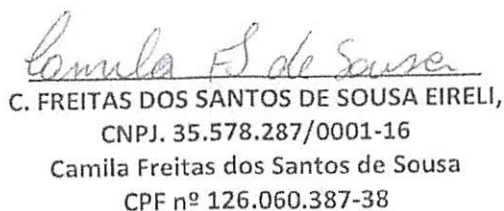 Camila F S de Sousa
C. FREITAS DOS SANTOS DE SOUSA EIRELI,
CNPJ. 35.578.287/0001-16
Camila Freitas dos Santos de Sousa
CPF nº 126.060.387-38